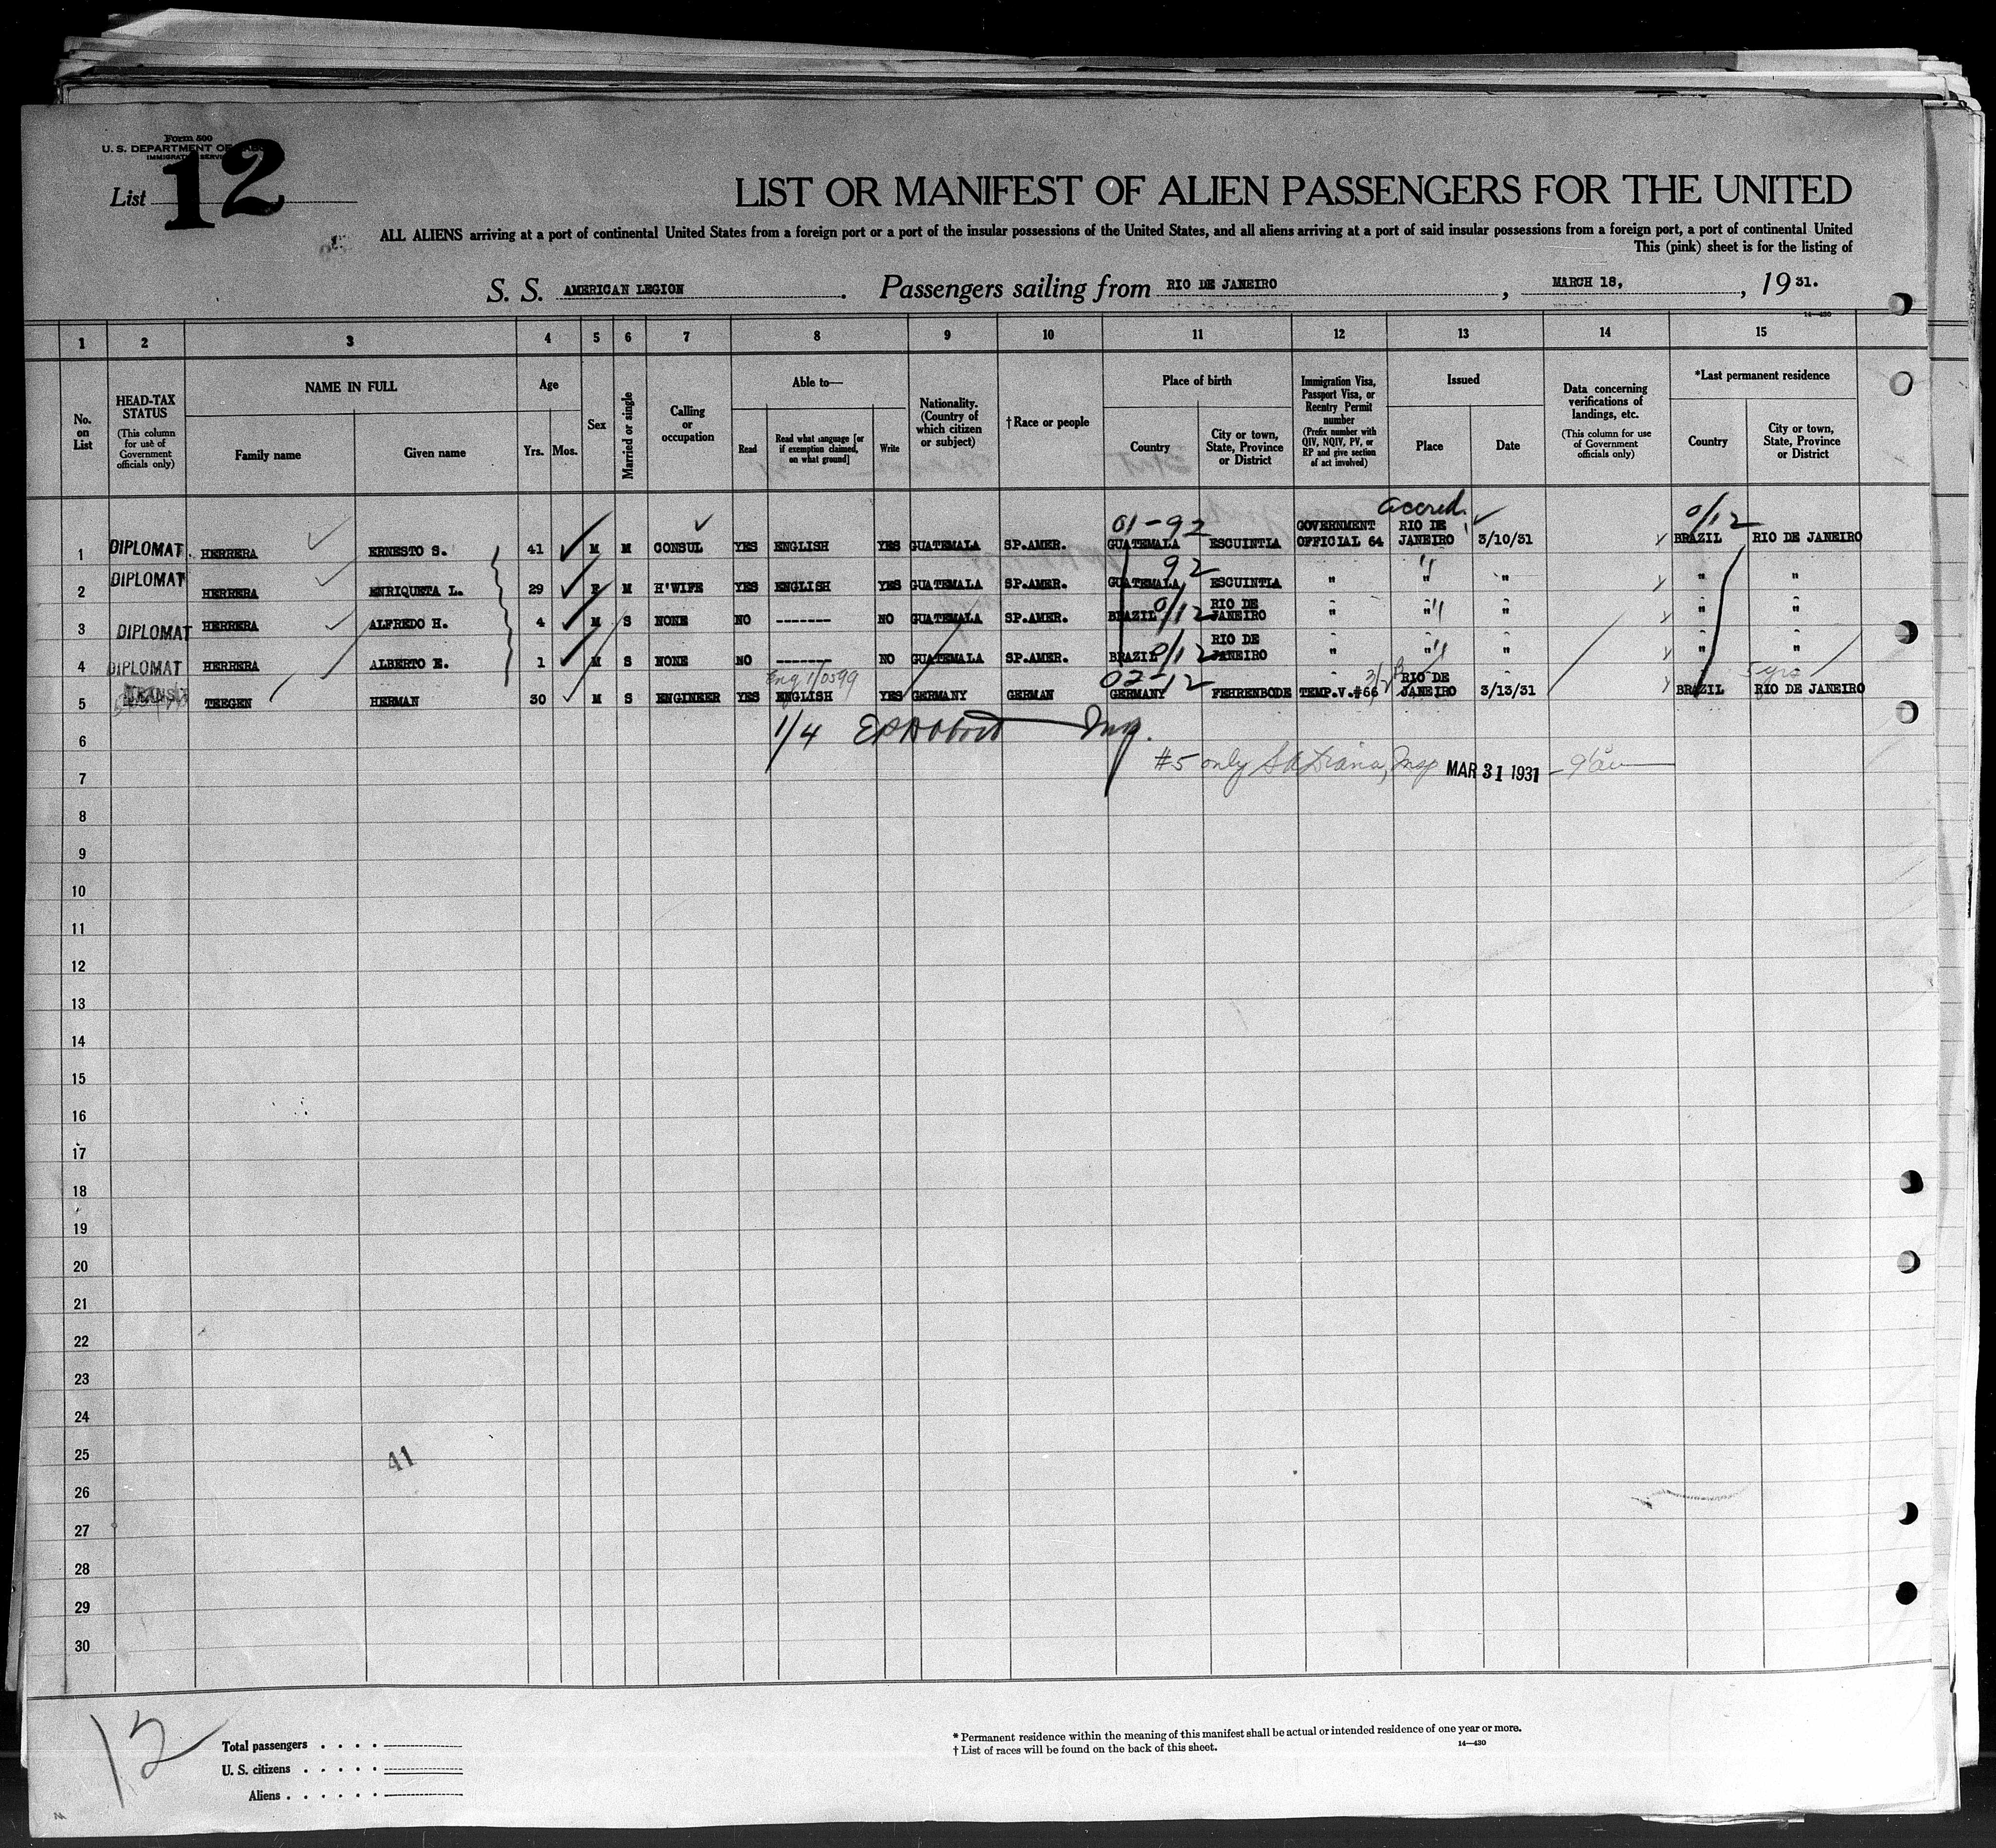 Form 500
U. S. DEPARTMENT OF LABOR
IMMIGRATION SERVICE
List 12
LIST OR MANIFEST OF ALIEN PASSENGERS FOR THE UNITED
ALL ALIENS arriving at a port of continental United States from a foreign port or a port of the insular possessions of the United States, and all aliens arriving at a port of said insular possessions from a foreign port, a port of continental United
This (pink) sheet is for the listing of
S. S. AMERICAN LEGION. Passengers sailing from RIO DE JANEIRO, MARCH 18, 1931.
14—430
1 2 3 4 5 6 7 8 9 10 11 12 13 14 15
No. on List
HEAD-TAX STATUS (This column for use of Government officials only)
NAME IN FULL
Family name
Given name
Age
Yrs. Mos.
Sex
Married or single
Calling or occupation
Able to—
Read
Read what language [or if exemption claimed, on what ground]
Write
Nationality. (Country of which citizen or subject)
† Race or people
Place of birth
Country
City or town, State, Province or District
Immigration Visa, Passport Visa, or Reentry Permit number (Prefix number with QIV, NQIV, PV, or RP and give section of act involved)
Issued
Place
Date
Data concerning verifications of landings, etc. (This column for use of Government officials only)
*Last permanent residence
Country
City or town, State, Province or District
01-92 accred. 0/12
1 DIPLOMAT HERRERA ERNESTO S. 41 M M CONSUL YES ENGLISH YES GUATEMALA SP.AMER. GUATEMALA ESCUINTLA GOVERNMENT OFFICIAL 64 RIO DE JANEIRO 3/10/31 BRAZIL RIO DE JANEIRO
92
2 DIPLOMAT HERRERA ENRIQUETA L. 29 F M H'WIFE YES ENGLISH YES GUATEMALA SP.AMER. GUATEMALA ESCUINTLA " " " " "
3 DIPLOMAT HERRERA ALFREDO H. 4 M S NONE NO ------- NO GUATEMALA SP.AMER. BRAZIL 0/12 RIO DE JANEIRO " " " " "
4 DIPLOMAT HERRERA ALBERTO E. 1 M S NONE NO ------- NO GUATEMALA SP.AMER. BRAZIL 0/12 RIO DE JANEIRO " " " " "
Eng 1/0599 02-12 5 yrs
5 TRANSIT TEEGEN HERMAN 30 M S ENGINEER YES ENGLISH YES GERMANY GERMAN GERMANY FEHRENBODE TEMP.V.#66 RIO DE JANEIRO 3/13/31 BRAZIL RIO DE JANEIRO
1/4 Insp.
6
#5 only Insp MAR 31 1931
7
8
9
10
11
12
13
14
15
16
17
18
19
20
21
22
23
24
25
41
26
27
28
29
30
12
Total passengers . . . .
U. S. citizens . . . . .
Aliens . . . . . .
* Permanent residence within the meaning of this manifest shall be actual or intended residence of one year or more.
† List of races will be found on the back of this sheet.
14—430